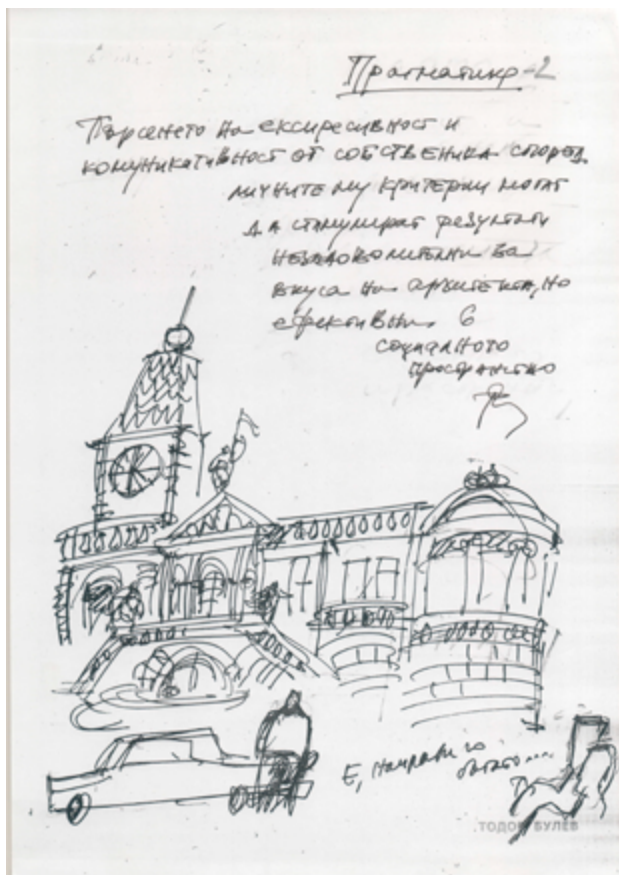 Прагматика-2
Търсенето на експресивност и
комуникативност от собственика според
личните му критерии могат
да стимулират резултати
незадоволителни за
вкуса на архитекта, но
ефективни в
социалното
пространство
Е, направи го
ТОДОР БУЛЕВ